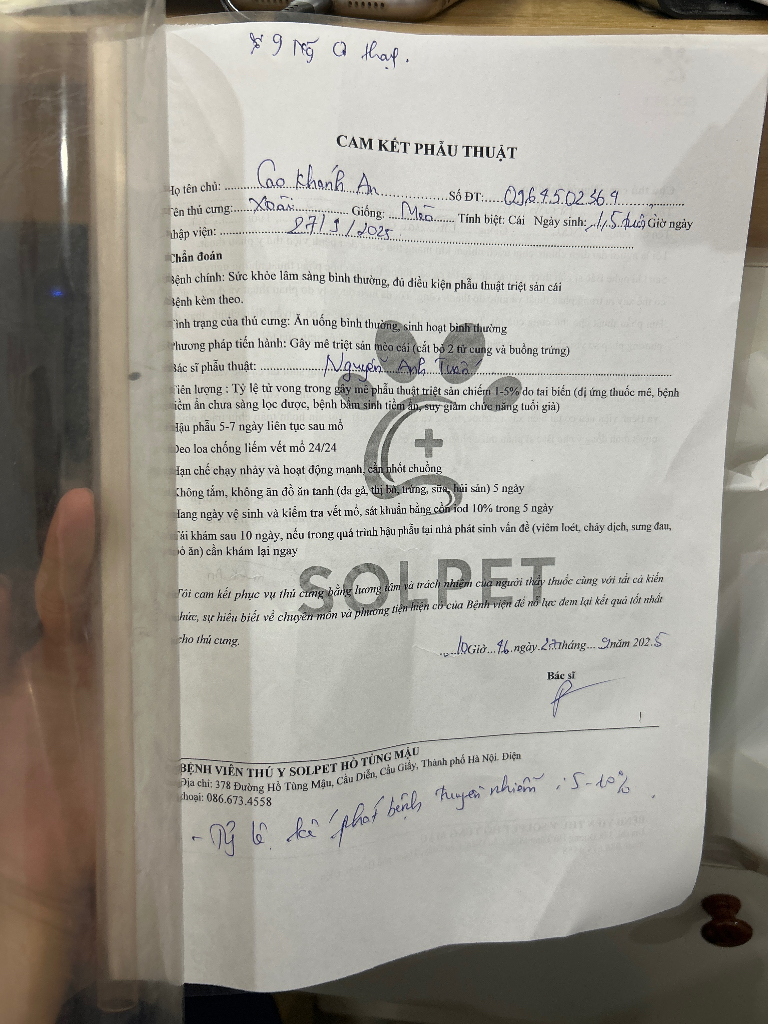 9 Ng Q thạp.
CAM KẾT PHẪU THUẬT
Họ tên chủ: Cao Khánh An Số ĐT: 0964502364
Tên thú cưng: Xoài Giống: Mèo Tính biệt: Cái Ngày sinh: 1,5 tuổi Giờ ngày
nhập viện: 27/9/2025
Chẩn đoán
Bệnh chính: Sức khỏe lâm sàng bình thường, đủ điều kiện phẫu thuật triệt sản cái
Bệnh kèm theo.
Tình trạng của thú cưng: Ăn uống bình thường, sinh hoạt bình thường
Phương pháp tiến hành: Gây mê triệt sản mèo cái (cắt bỏ 2 tử cung và buồng trứng)
Bác sĩ phẫu thuật: Nguyễn Anh Tuấn
Tiên lượng : Tỷ lệ tử vong trong gây mê phẫu thuật triệt sản chiếm 1-5% do tai biến (dị ứng thuốc mê, bệnh
tiềm ẩn chưa sàng lọc được, bệnh bẩm sinh tiềm ẩn, suy giảm chức năng tuổi già)
Hậu phẫu 5-7 ngày liên tục sau mổ
Đeo loa chống liếm vết mổ 24/24
Hạn chế chạy nhảy và hoạt động mạnh, cần nhốt chuồng
Không tắm, không ăn đồ ăn tanh (da gà, thị bò, trứng, sữa, hải sản) 5 ngày
Hàng ngày vệ sinh và kiểm tra vết mổ, sát khuẩn bằng cồn iod 10% trong 5 ngày
Tái khám sau 10 ngày, nếu trong quá trình hậu phẫu tại nhà phát sinh vấn đề (viêm loét, chảy dịch, sưng đau,
bỏ ăn) cần khám lại ngay
SOLPET
Tôi cam kết phục vụ thú cưng bằng lương tâm và trách nhiệm của người thầy thuốc cùng với tất cả kiến
thức, sự hiểu biết về chuyên môn và phương tiện hiện có của Bệnh viện để nỗ lực đem lại kết quả tốt nhất
cho thú cưng.
10 Giờ 46 ngày 27 tháng 9 năm 2025
Bác sĩ
BỆNH VIỆN THÚ Y SOLPET HỒ TÙNG MẬU
Địa chỉ: 378 Đường Hồ Tùng Mậu, Cầu Diễn, Cầu Giấy, Thành phố Hà Nội. Điện
thoại: 086.673.4558
- Tỷ lệ kế phát bệnh truyền nhiễm : 5-10%